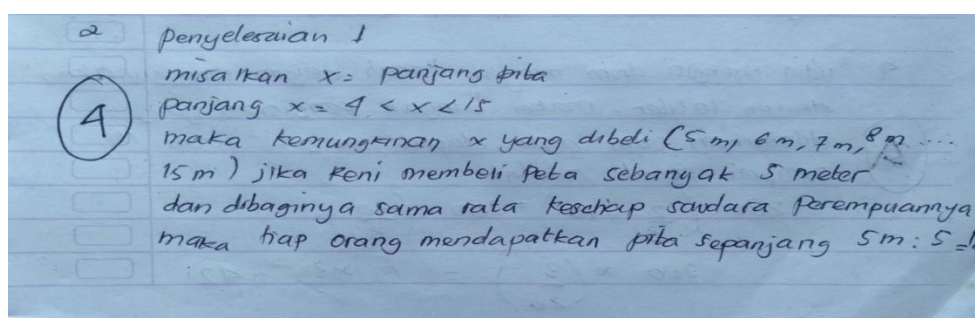 2 penyelesaian 1
misalkan x = panjang pita
panjang x = 4 < x < 15
4
maka kemungkinan x yang dibeli (5 m, 6 m, 7 m, 8 m ....
15 m) jika Reni membeli Peta sebanyak 5 meter
dan dibaginya sama rata kesetiap saudara Perempuannya
maka tiap orang mendapatkan pita sepanjang 5m : 5 =